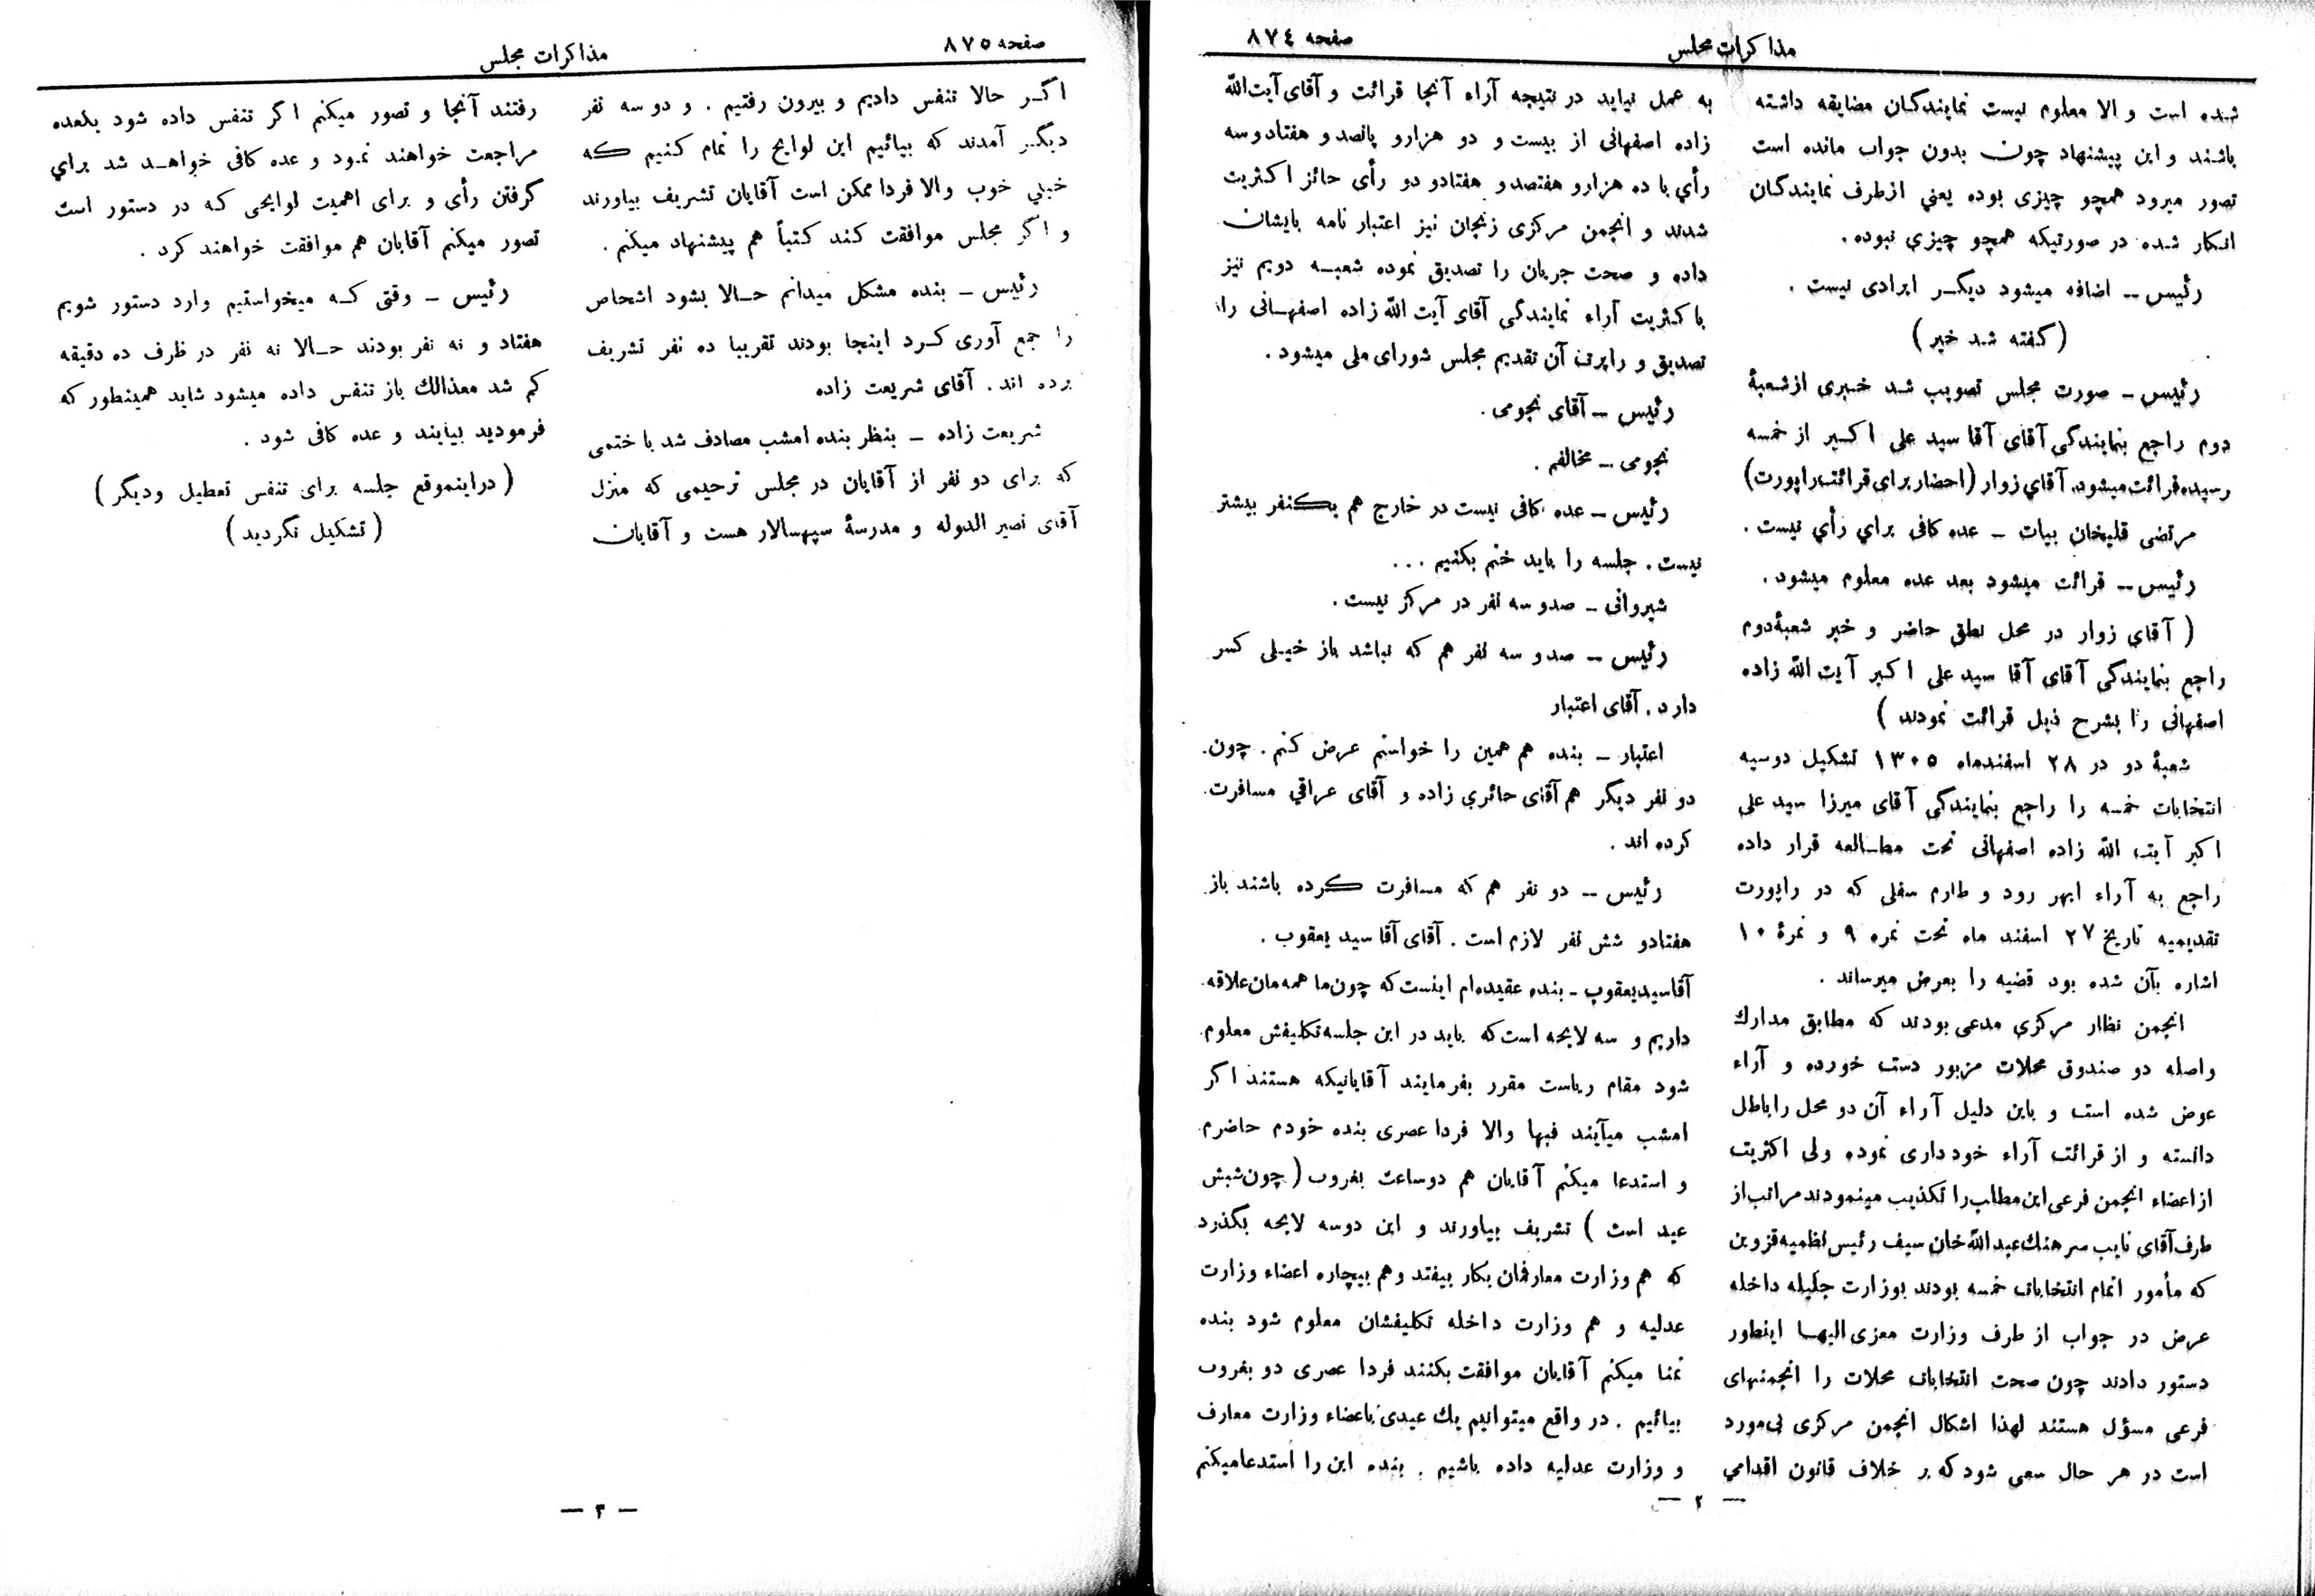 صفحه ۸۷۴
مذاکرات مجلس
شده است و الا معلوم نیست نمایندگان مضایقه داشته
باشند و این پیشنهاد چون بدون جواب مانده است
تصور میرود همچو چیزی بوده یعنی از طرف نمایندگان
انکار شده در صورتیکه همچو چیزی نبوده.
رئیس – اضافه میشود دیگر ایرادی نیست.
(گفته شد خیر)
رئیس – صورت مجلس تصویب شد خبری از شعبهٔ
دوم راجع بنمایندگی آقای آقا سید علی اکبر از خمسه
رسیده قرائت میشود. آقای زوار (احضار برای قرائت راپورت)
مرتضی قلیخان بیات – عده کافی برای رأی نیست.
رئیس – قرائت میشود بعد عده معلوم میشود.
( آقای زوار در محل نطق حاضر و خبر شعبهٔ دوم
راجع بنمایندگی آقای آقا سید علی اکبر آیت الله زاده
اصفهانی را بشرح ذیل قرائت نمودند )
شعبهٔ دو در ۲۸ اسفندماه ۱۳۰۵ تشکیل دوسیه
انتخابات خمسه را راجع بنمایندگی آقای میرزا سید علی
اکبر آیت الله زاده اصفهانی تحت مطالعه قرار داده
راجع به آراء ابهر رود و طارم سفلی که در راپورت
تقدیمیه تاریخ ۲۷ اسفند ماه تحت نمره ۹ و نمرهٔ ۱۰
اشاره بآن شده بود قضیه را بعرض میرساند.
انجمن نظار مرکزی مدعی بودند که مطابق مدارك
واصله دو صندوق محلات مزبور دست خورده و آراء
عوض شده است و باین دلیل آراء آن دو محل را باطل
دانسته و از قرائت آراء خودداری نموده ولی اکثریت
از اعضاء انجمن فرعی این مطالب را تکذیب مینمودند مراتب از
طرف آقای نایب سرهنك عبدالله خان سیف رئیس نظمیه قزوین
که مأمور اتمام انتخابات خمسه بودند بوزارت جلیله داخله
عرض در جواب از طرف وزارت معزی الیها اینطور
دستور دادند چون صحت انتخابات محلات را انجمنهای
فرعی مسؤل هستند لهذا اشکال انجمن مرکزی بی‌مورد
است در هر حال سعی شود که بر خلاف قانون اقدامی
به عمل نیاید در نتیجه آراء آنجا قرائت و آقای آیت الله
زاده اصفهانی از بیست و دو هزار و پانصد و هفتاد و سه
رأی با ده هزار و هفتصد و هفتاد و دو رأی حائز اکثریت
شدند و انجمن مرکزی زنجان نیز اعتبار نامه بایشان
داده و صحت جریان را تصدیق نموده شعبه دویم نیز
باکثریت آراء نمایندگی آقای آیت الله زاده اصفهانی را
تصدیق و راپرت آن تقدیم مجلس شورای ملی میشود.
رئیس – آقای نجومی.
نجومی – مخالفم.
رئیس – عده کافی نیست در خارج هم یکنفر بیشتر
نیست. جلسه را باید ختم بکنیم ...
شیروانی – صدو سه نفر در مرکز نیست.
رئیس – صدو سه نفر هم که نباشد باز خیلی کسر
دارد. آقای اعتبار
اعتبار – بنده هم همین را خواستم عرض کنم. چون
دو نفر دیگر هم آقای حائری زاده و آقای عراقی مسافرت
کرده اند.
رئیس – دو نفر هم که مسافرت کرده باشند باز
هفتادو شش نفر لازم است. آقای آقا سید یعقوب.
آقا سید یعقوب – بنده عقیده‌ام اینست که چون ما همه‌مان علاقه
داریم و سه لایحه است که باید در این جلسه تکلیفش معلوم
شود مقام ریاست مقرر بفرمایند آقایانیکه هستند اگر
امشب میآیند فبها والا فردا عصری بنده خودم حاضرم
و استدعا میکنم آقایان هم دو ساعت بغروب ( چون شبش
عید است ) تشریف بیاورند و این دوسه لایحه بگذرد
که هم وزارت معارفمان بکار بیفتد و هم بیچاره اعضاء وزارت
عدلیه و هم وزارت داخله تکلیفشان معلوم شود بنده
تمنا میکنم آقایان موافقت بکنند فردا عصری دو بغروب
بیائیم. در واقع میتوانیم یك عیدی باعضاء وزارت معارف
و وزارت عدلیه داده باشیم. بنده این را استدعا میکنم
— ۲ —
صفحه ۸۷۵
مذاکرات مجلس
اگر حالا تنفس دادیم و بیرون رفتیم. و دو سه نفر
دیگر آمدند که بیائیم این لوایح را تمام کنیم که
خیلی خوب والا فردا ممکن است آقایان تشریف بیاورند
و اگر مجلس موافقت کند کتباً هم پیشنهاد میکنم.
رئیس – بنده مشکل میدانم حالا بشود اشخاص
را جمع آوری کرد اینجا بودند تقریبا ده نفر تشریف
برده اند. آقای شریعت زاده
شریعت زاده – بنظر بنده امشب مصادف شد با ختمی
که برای دو نفر از آقایان در مجلس ترحیمی که منزل
آقای نصیر الدوله و مدرسهٔ سپهسالار هست و آقایان
رفتند آنجا و تصور میکنم اگر تنفس داده شود یکعده
مراجعت خواهند نمود و عده کافی خواهد شد برای
گرفتن رأی و برای اهمیت لوایحی که در دستور است
تصور میکنم آقایان هم موافقت خواهند کرد.
رئیس – وقتی که میخواستیم وارد دستور شویم
هفتاد و نه نفر بودند حالا نه نفر در ظرف ده دقیقه
کم شد معذالك باز تنفس داده میشود شاید همینطور که
فرمودید بیایند و عده کافی شود.
(در اینموقع جلسه برای تنفس تعطیل و دیگر)
(تشکیل نگردید)
— ۳ —